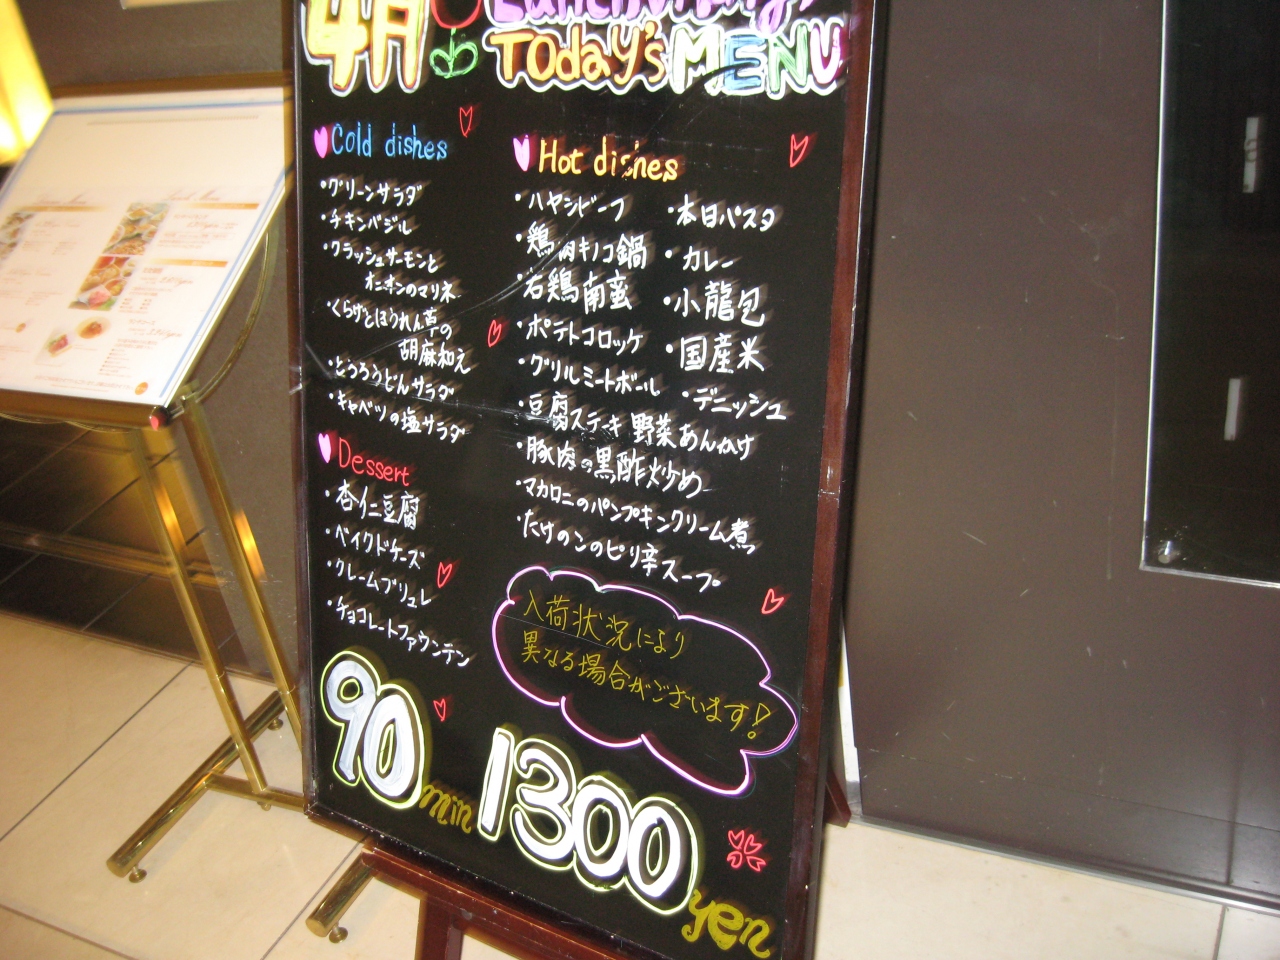 4月
Lunch
Today's MENU
Cold dishes
・グリーンサラダ
・チキンバジル
・クラッシュサーモンと
オニオンのマリネ
・くらげとほうれん草の
胡麻和え
・とろろうどんサラダ
・キャベツの塩サラダ
Dessert
・杏仁豆腐
・ベイクドチーズ
・クレームブリュレ
・チョコレートファウンテン
Hot dishes
・ハヤシビーフ
・鶏肉キノコ鍋
・若鶏南蛮
・ポテトコロッケ
・グリルミートボール
・豆腐ステーキ 野菜あんかけ
・豚肉の黒酢炒め
・マカロニのパンプキンクリーム煮
・たけのこのピリ辛スープ
・本日パスタ
・カレー
・小龍包
・国産米
・デニッシュ
入荷状況により
異なる場合がございます!
90min 1300yen